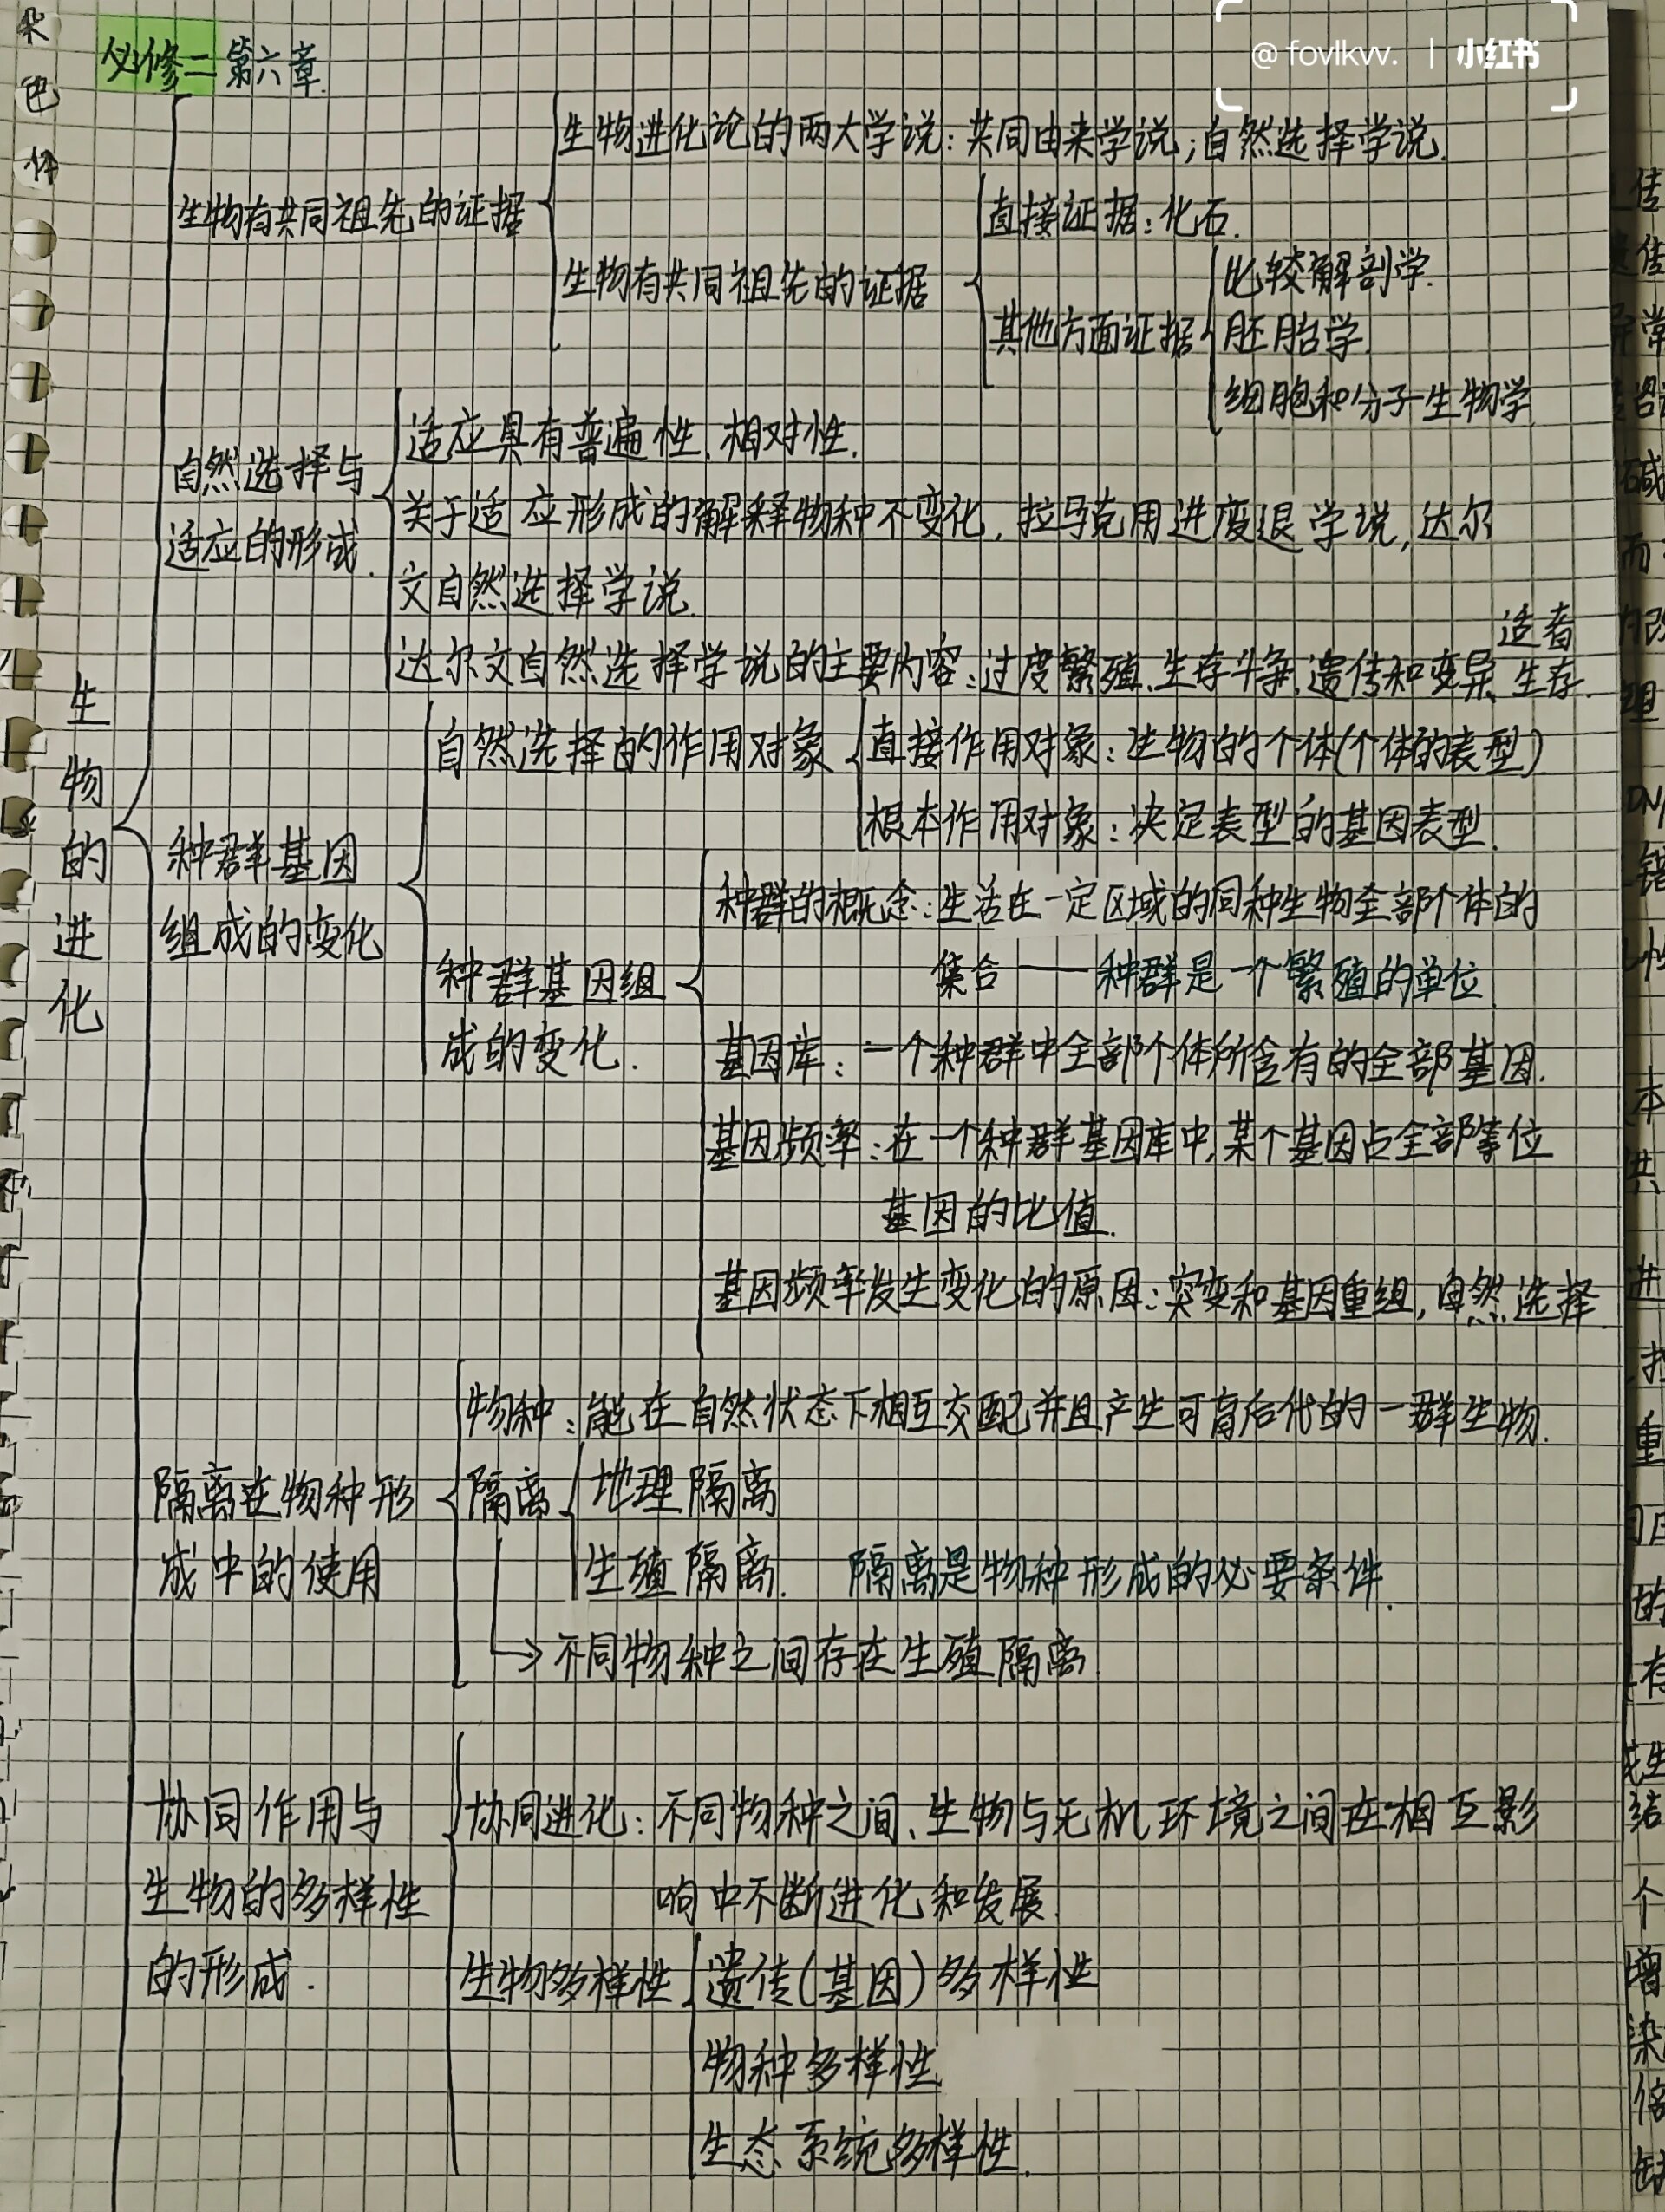 @fovlkvv. | 小红书
必修二 第六章.
生物的进化
生物有共同祖先的证据
生物进化论的两大学说：共同由来学说；自然选择学说.
生物有共同祖先的证据
直接证据：化石.
其他方面证据
比较解剖学.
胚胎学.
细胞和分子生物学
自然选择与
适应的形成.
适应具有普遍性、相对性.
关于适应形成的解释物种不变化，拉马克用进废退学说，达尔
文自然选择学说.
达尔文自然选择学说的主要内容：过度繁殖、生存斗争、遗传和变异、适者
生存.
种群基因
组成的变化
自然选择的作用对象
直接作用对象：生物的个体(个体的表型)
根本作用对象：决定表型的基因表型.
种群基因组
成的变化.
种群的概念：生活在一定区域的同种生物全部个体的
集合——种群是一个繁殖的单位.
基因库：一个种群中全部个体所含有的全部基因.
基因频率：在一个种群基因库中，某个基因占全部等位
基因的比值.
基因频率发生变化的原因：突变和基因重组，自然选择.
隔离在物种形
成中的使用
物种：能在自然状态下相互交配并且产生可育后代的一群生物.
隔离
地理隔离
生殖隔离. 隔离是物种形成的必要条件.
→不同物种之间存在生殖隔离.
协同作用与
生物的多样性
的形成.
协同进化：不同物种之间、生物与无机环境之间在相互影
响中不断进化和发展.
生物多样性
遗传(基因)多样性
物种多样性
生态系统多样性.
染
色
体